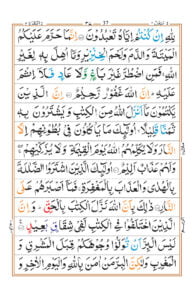 البقرة ٢ 37 سيقول ٢
لِلّٰهِ اِنْ كُنْتُمْ اِيَّاهُ تَعْبُدُوْنَ اِنَّمَا حَرَّمَ عَلَيْكُمُ
الْمَيْتَةَ وَالدَّمَ وَلَحْمَ الْخِنْزِيْرِ وَمَآ اُهِلَّ بِهٖ لِغَيْرِ
اللّٰهِ فَمَنِ اضْطُرَّ غَيْرَ بَاغٍ وَّلَا عَادٍ فَلَآ اِثْمَ
عَلَيْهِ اِنَّ اللّٰهَ غَفُوْرٌ رَّحِيْمٌ اِنَّ الَّذِيْنَ
يَكْتُمُوْنَ مَآ اَنْزَلَ اللّٰهُ مِنَ الْكِتٰبِ وَيَشْتَرُوْنَ بِهٖ
ثَمَنًا قَلِيْلًا اُولٰٓئِكَ مَا يَاْكُلُوْنَ فِيْ بُطُوْنِهِمْ اِلَّا
النَّارَ وَلَا يُكَلِّمُهُمُ اللّٰهُ يَوْمَ الْقِيٰمَةِ وَلَا يُزَكِّيْهِمْ
وَلَهُمْ عَذَابٌ اَلِيْمٌ اُولٰٓئِكَ الَّذِيْنَ اشْتَرَوُا الضَّلٰلَةَ
بِالْهُدٰى وَالْعَذَابَ بِالْمَغْفِرَةِ فَمَآ اَصْبَرَهُمْ عَلَى
النَّارِ ذٰلِكَ بِاَنَّ اللّٰهَ نَزَّلَ الْكِتٰبَ بِالْحَقِّ وَاِنَّ
الَّذِيْنَ اخْتَلَفُوْا فِي الْكِتٰبِ لَفِيْ شِقَاقٍ بَعِيْدٍ
لَيْسَ الْبِرَّ اَنْ تُوَلُّوْا وُجُوْهَكُمْ قِبَلَ الْمَشْرِقِ وَ
الْمَغْرِبِ وَلٰكِنَّ الْبِرَّ مَنْ اٰمَنَ بِاللّٰهِ وَالْيَوْمِ الْاٰخِرِ وَ